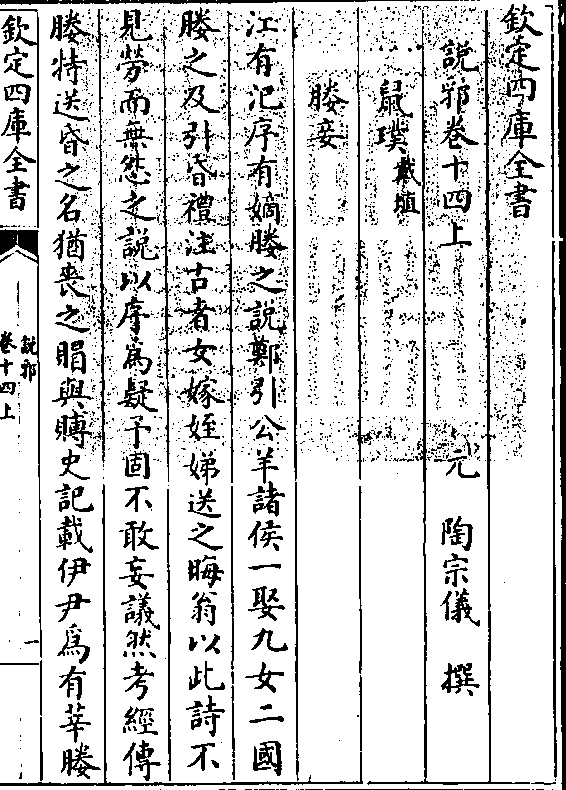 欽定四庫全書
説郛卷十四上
元 陶宗儀 撰
鼠璞 戴埴
媵妾
江有汜序有嫡媵之説鄭引公羊諸侯一娶九女二國
媵之及引昏禮注古者女嫁姪娣送之晦翁以此詩不
見勞而無怨之説以序為疑予固不敢妄議然考經傳
媵特送昏之名猶喪之賵與賻史記載伊尹為有莘媵
欽定四庫全書
説郛
卷十四上
一